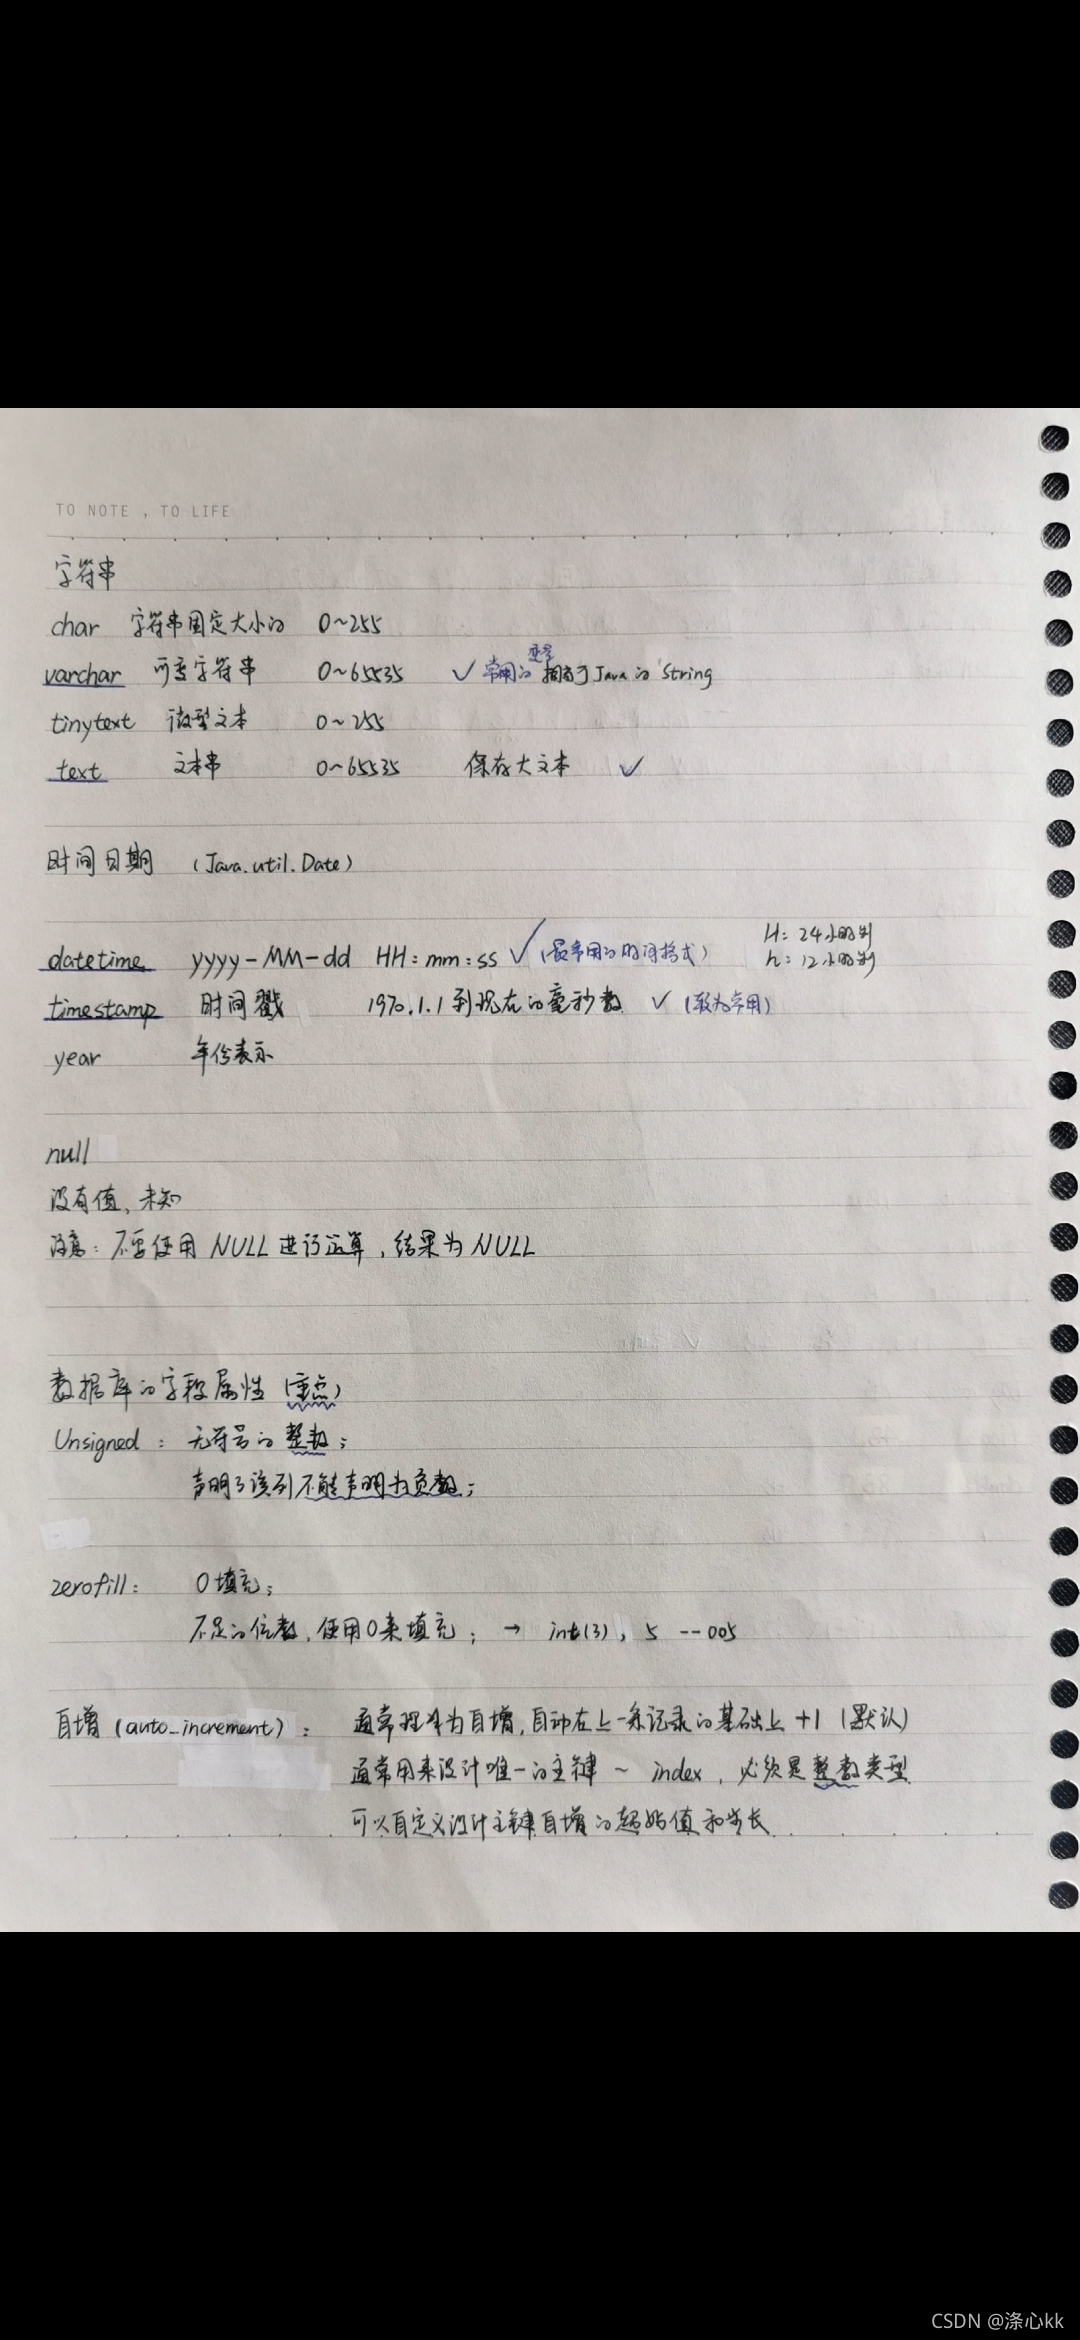 TO NOTE , TO LIFE
字符串
char 字符串固定大小的 0~255
varchar 可变字符串 0~65535 ✓ 常用的变量 相当于Java的String
tinytext 微型文本 0~255
text 文本串 0~65535 保存大文本 ✓
时间日期 (Java.util.Date)
datetime yyyy-MM-dd HH:mm:ss ✓ (最常用的时间格式) H: 24小时制
h: 12小时制
timestamp 时间戳 1970.1.1到现在的毫秒数 ✓ (较为常用)
year 年份表示
null
没有值、未知
注意: 不要使用 NULL 进行运算,结果为NULL
数据库的字段属性 (重点)
Unsigned : 无符号的整数;
声明了该列不能声明为负数;
zerofill: 0填充;
不足的位数,使用0来填充; → int(3), 5 --005
自增 (auto_increment) : 通常理解为自增,自动在上一条记录的基础上 +1 (默认)
通常用来设计唯一的主键 ~ index, 必须是整数类型
可以自定义设计主键自增的起始值和步长
CSDN @涤心kk